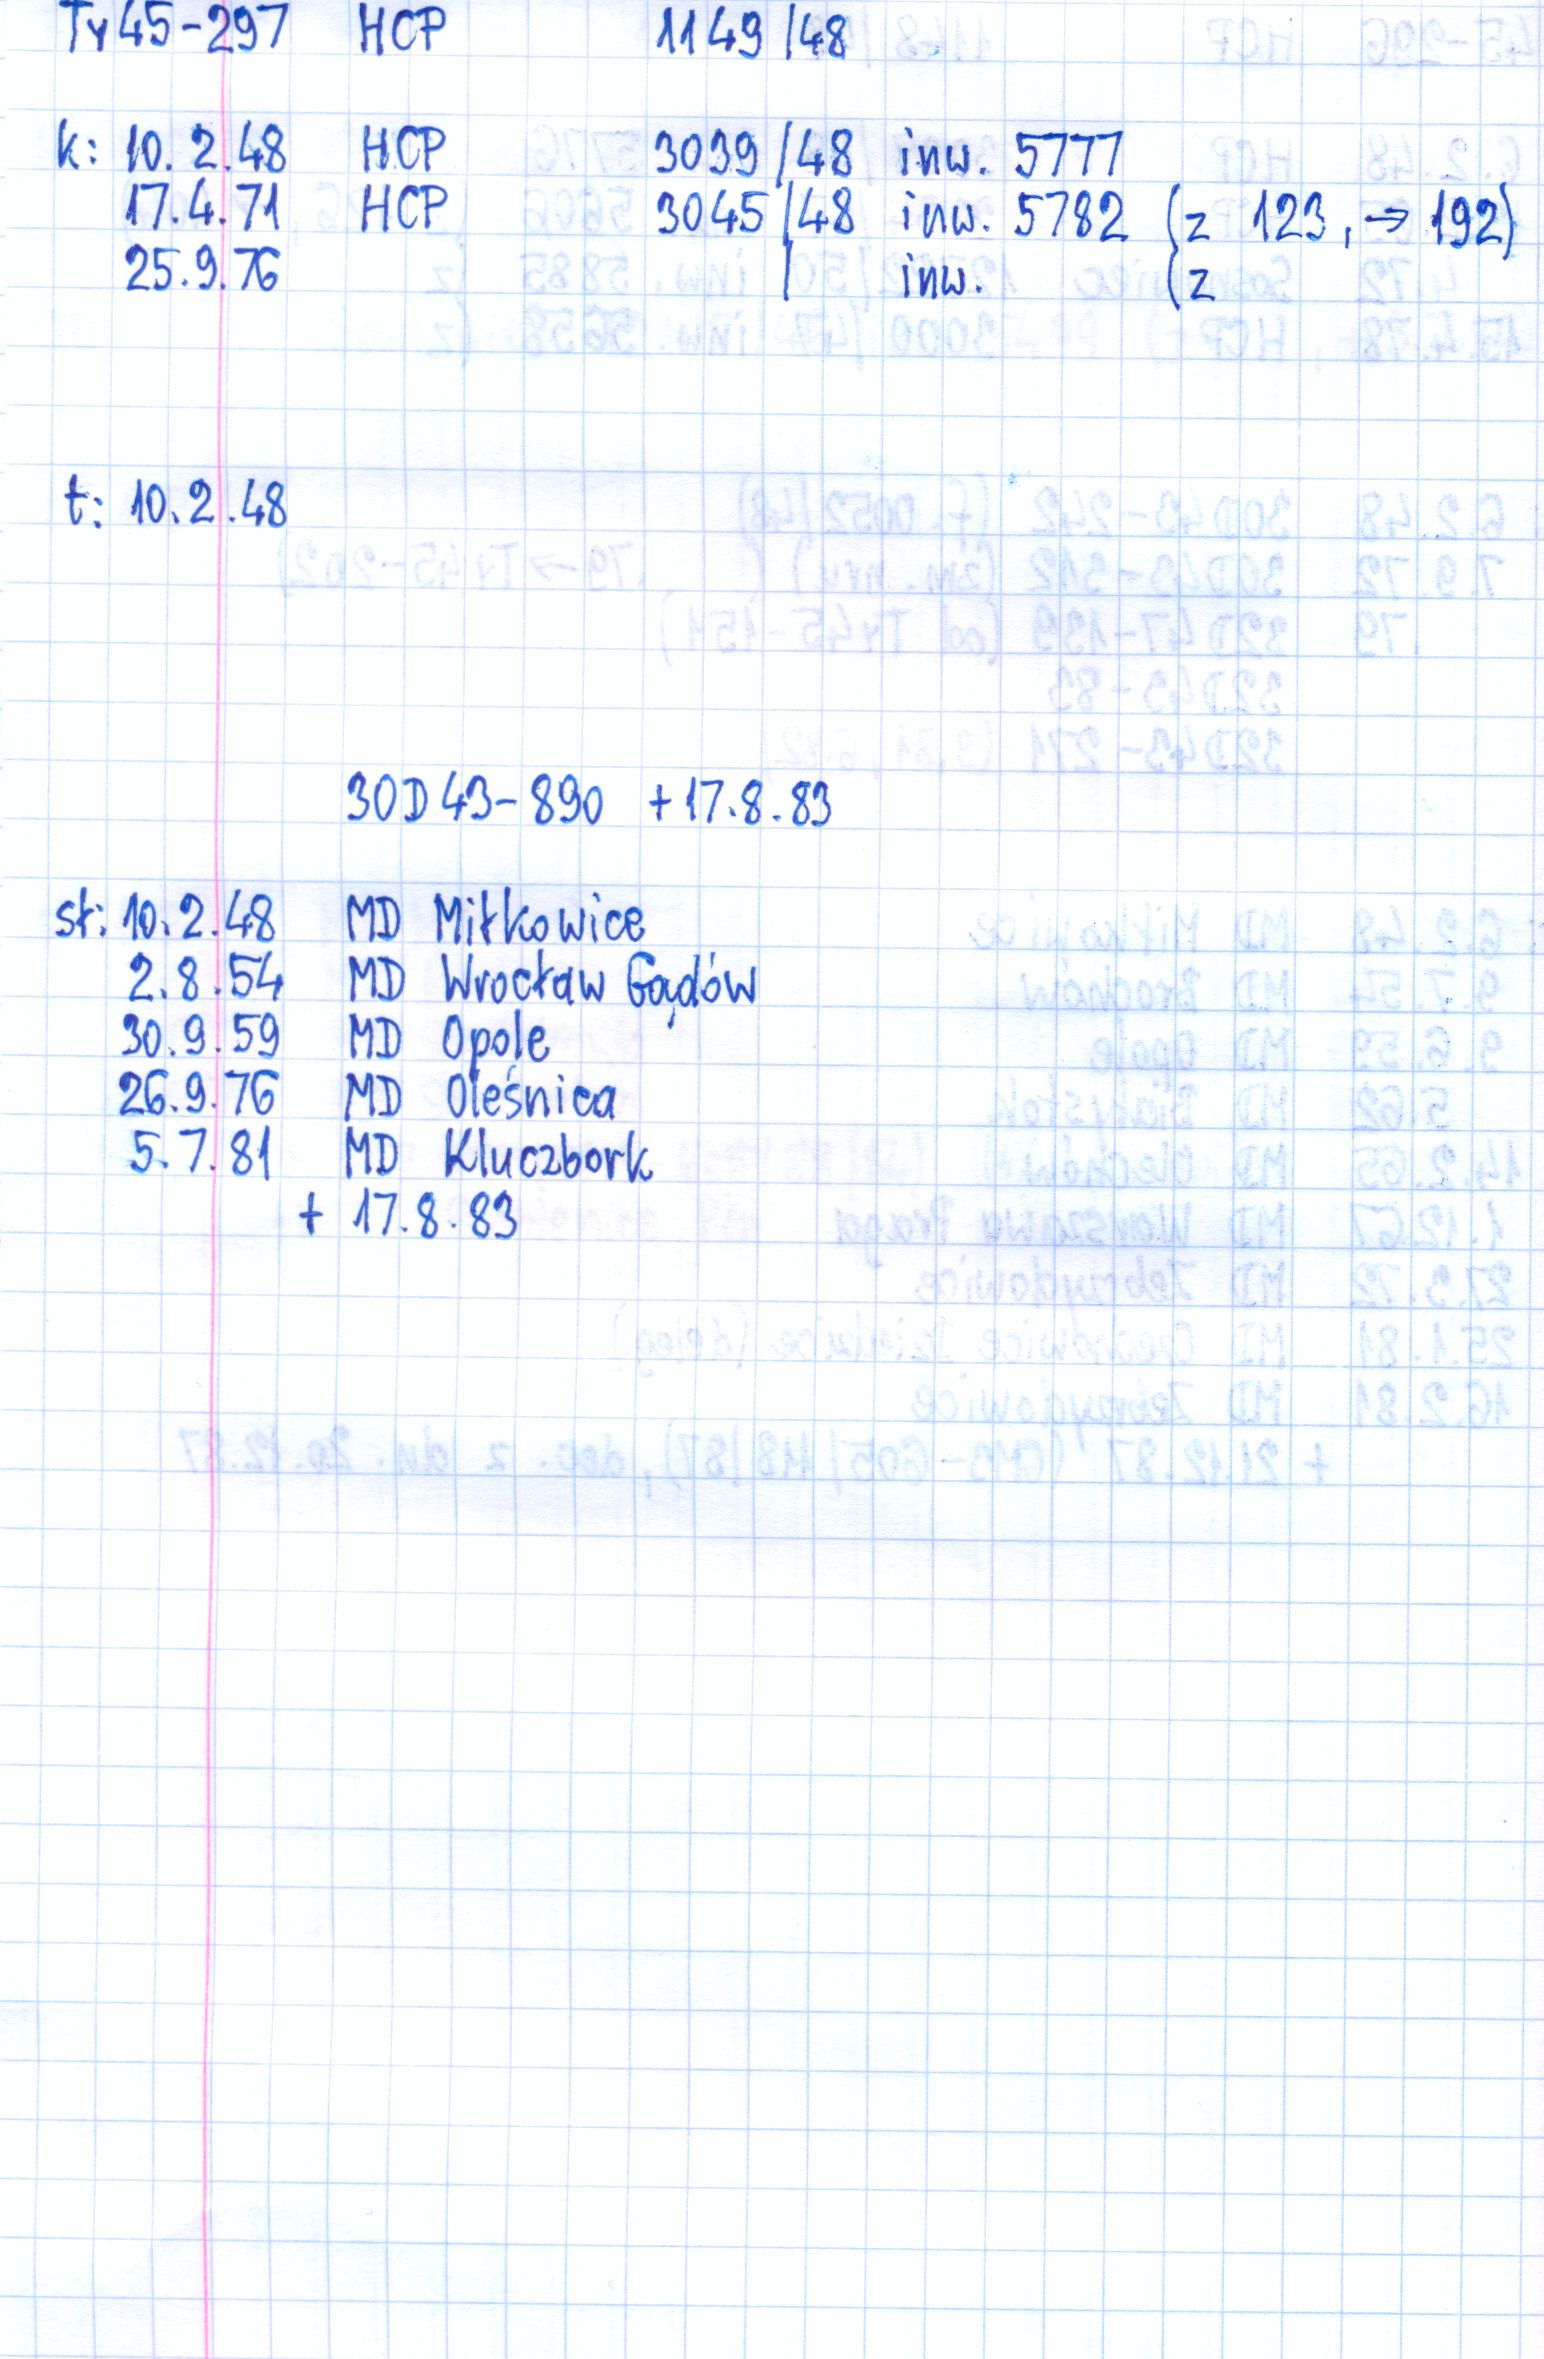 Ty45-297 HCP 1149/48
k: 10.2.48 HCP 3039/48 inw. 5777
17.4.71 HCP 3045/48 inw. 5782 (z 123, → 192)
25.9.76 / inw. (z
t: 10.2.48
30D43-890 +17.8.83
st: 10.2.48 MD Miłkowice
2.8.54 MD Wrocław Gądów
30.9.59 MD Opole
26.9.76 MD Oleśnica
5.7.81 MD Kluczbork
+ 17.8.83